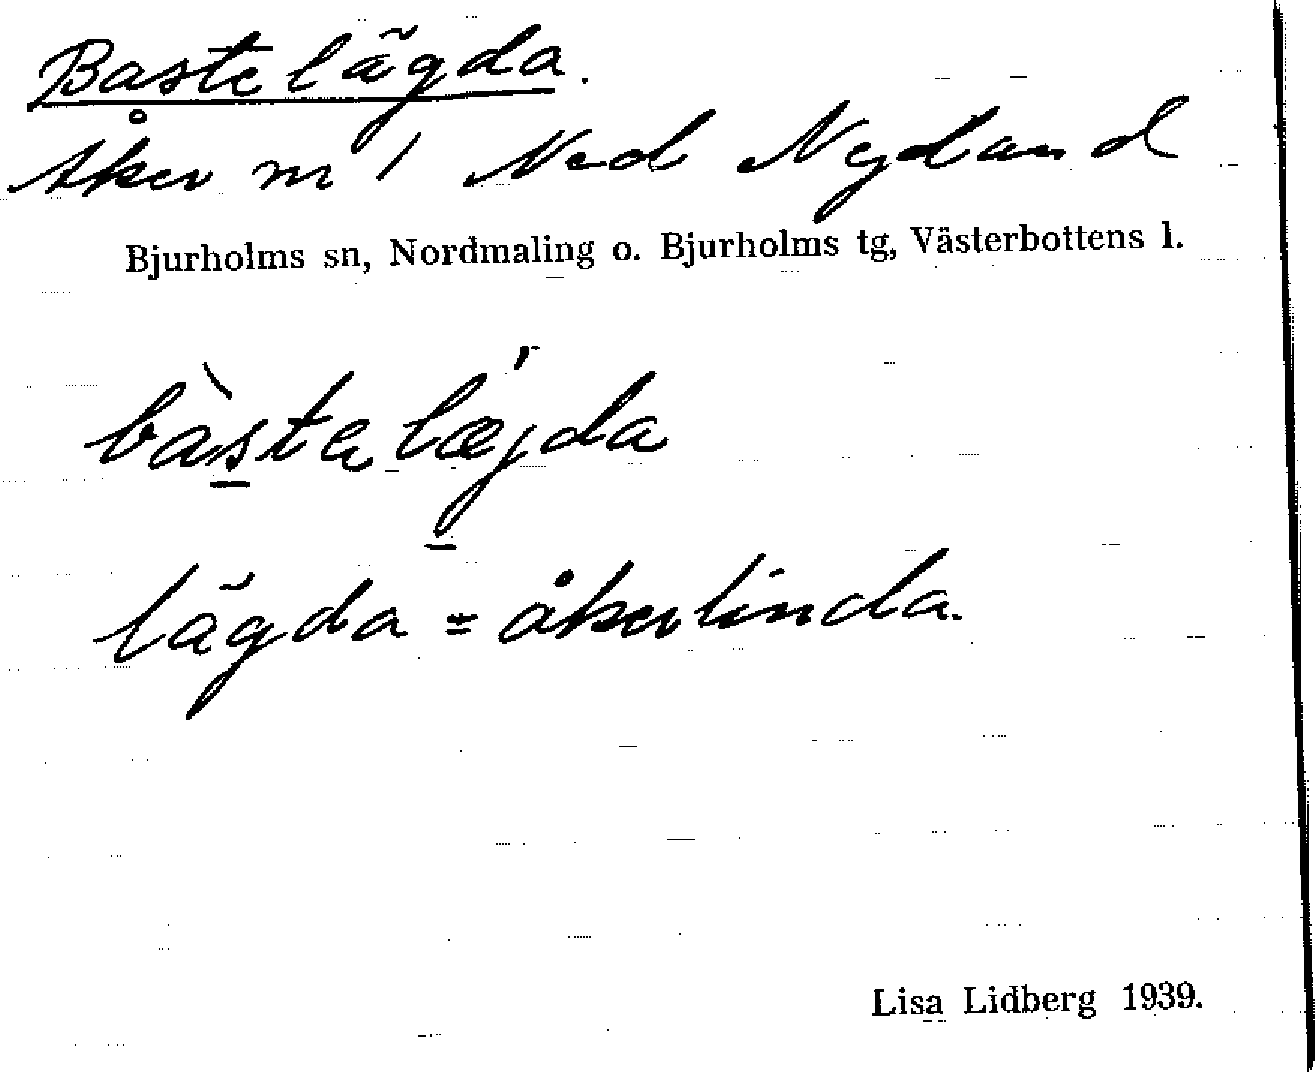 Bastelägda.
Åker nr 1 Ned Nyland
Bjurholms sn, Nordmaling o. Bjurholms tg, Västerbottens l.
bàstalæ̀jda
lägda = åkerlinda.
Lisa Lidberg 1939.